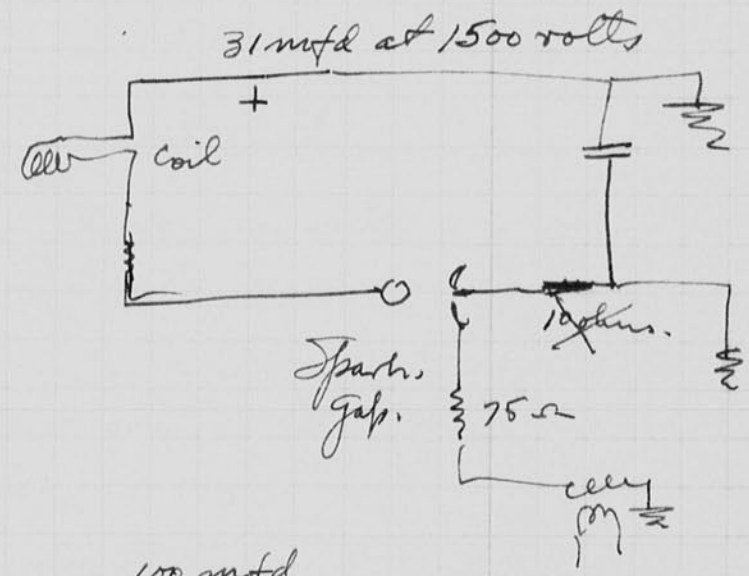 31 mfd at 1500 volts
+
Coil
10 ohms.
Spark.
Gap.
75 Ω
100 mfd